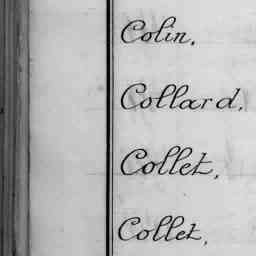 Colin,
Collard,
Collet,
Collet,